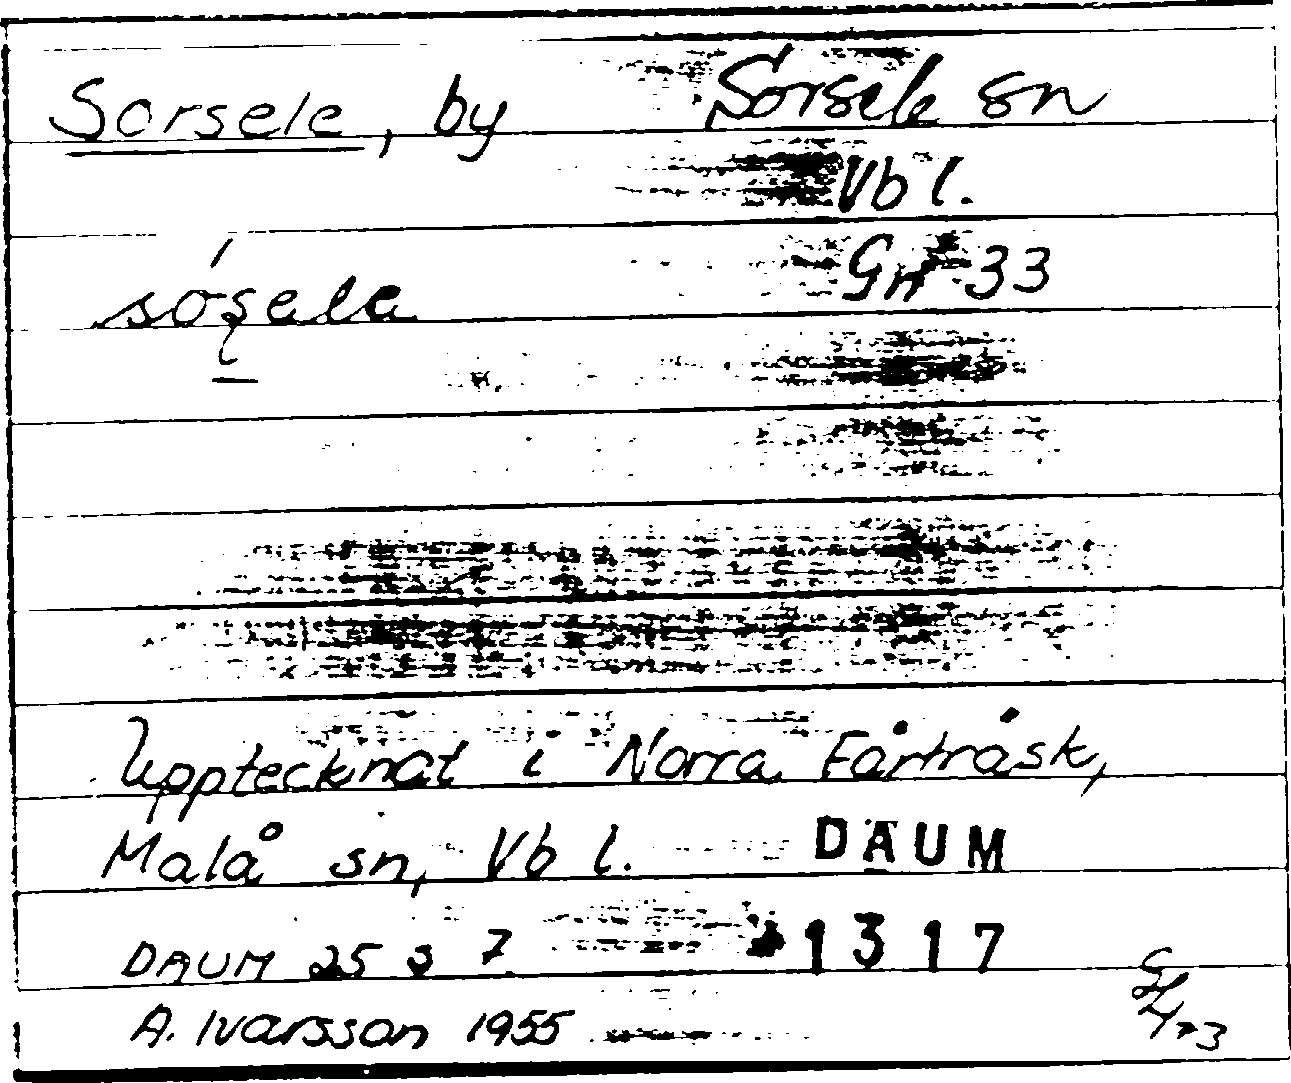 Sorsele, by Sorsele sn
Vb l.
Gn 33
Upptecknat i Norra Fårträsk,
Malå sn, Vb l. DAUM
DAUM 25 s 7 1317
A. Ivarsson 1955